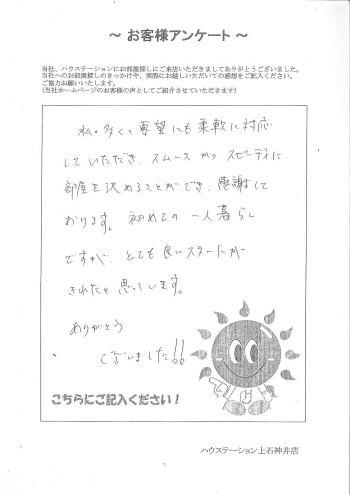 ～ お客様アンケート ～
当社、ハウステーションにお部屋探しにご来店いただきましてありがとうございました。
当社へのお部屋探しのきっかけや、実際にお越しいただいての感想をご記入ください。
ご協力お願いいたします。
(当社ホームページのお客様の声としてご紹介させていただきます)
私の多くの要望にも柔軟に対応
していただき、スムーズかつスピーディに
部屋を決めることができ、感謝して
おります。初めての一人暮らし
ですが、とても良いスタートが
きれたと思っています。
ありがとう
ございました!!
こちらにご記入ください！
ハウステーション上石神井店